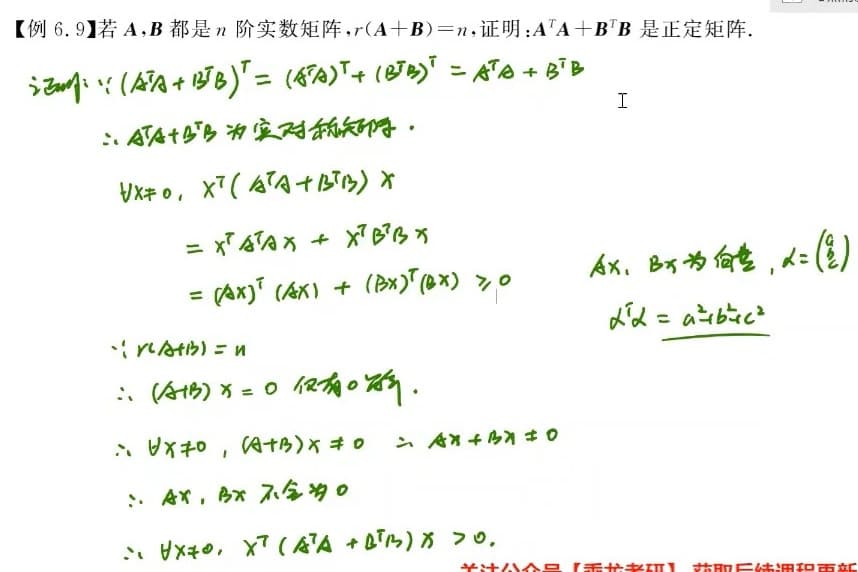 【例 6.9】若 A,B 都是 n 阶实数矩阵,r(A+B)=n,证明:AᵀA+BᵀB 是正定矩阵.
证明:∵ (AᵀA+BᵀB)ᵀ = (AᵀA)ᵀ+(BᵀB)ᵀ = AᵀA+BᵀB
∴ AᵀA+BᵀB 为实对称矩阵.
∀x≠0, xᵀ(AᵀA+BᵀB)x
= xᵀAᵀAx + xᵀBᵀBx
= (Ax)ᵀ(Ax) + (Bx)ᵀ(Bx) ⩾0
Ax, Bx 为向量, α=(a b c)
αᵀα = a²+b²+c²
∵ r(A+B)=n
∴ (A+B)x=0 仅有0解.
∴ ∀x≠0, (A+B)x≠0 ∴ Ax+Bx≠0
∴ Ax, Bx 不全为0
∴ ∀x≠0, xᵀ(AᵀA+BᵀB)x >0.
关注公众号【乘龙考研】获取后续课程更新